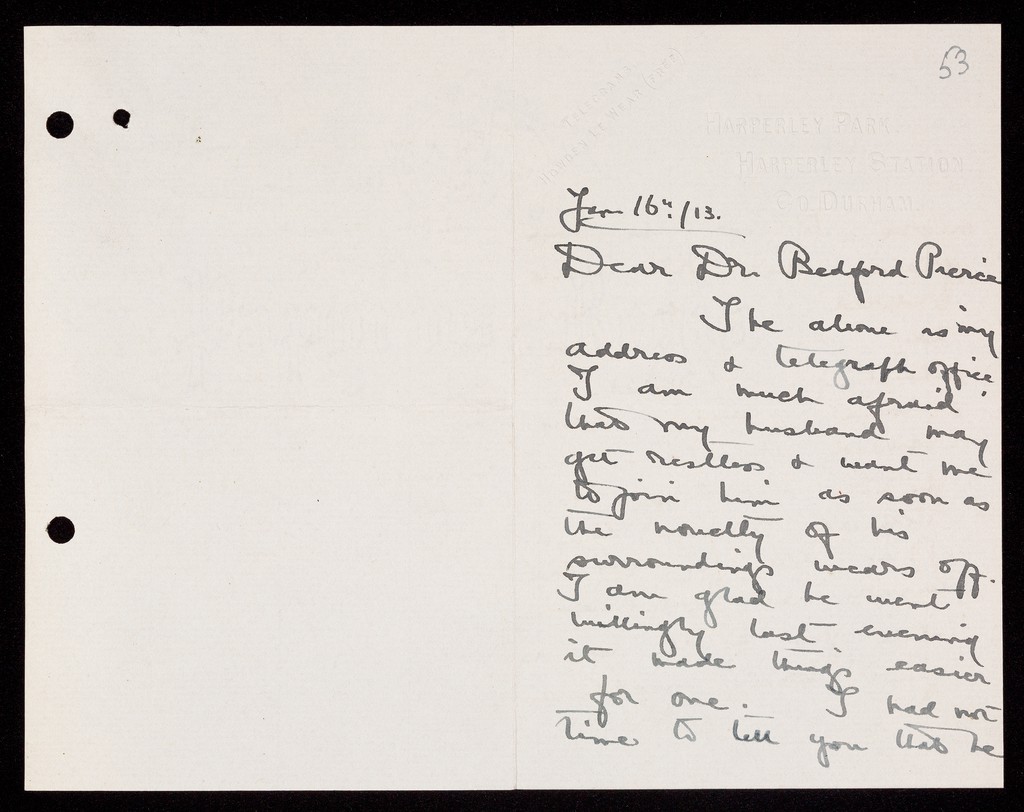 53
TELEGRAMS
WEAR (FREE)
HARPERLEY PARK
HARPERLEY STATION
CO. DURHAM.
Jan 16th/13.
Dear Dr. Bedford Pierce
The above is my
address & telegraph office.
I am much afraid
that my husband may
get restless & want me
to join him as soon as
the novelty of his
surroundings wears off.
I am glad he went
willingly last evening
it made things easier
for one. I had not
time to tell you that he